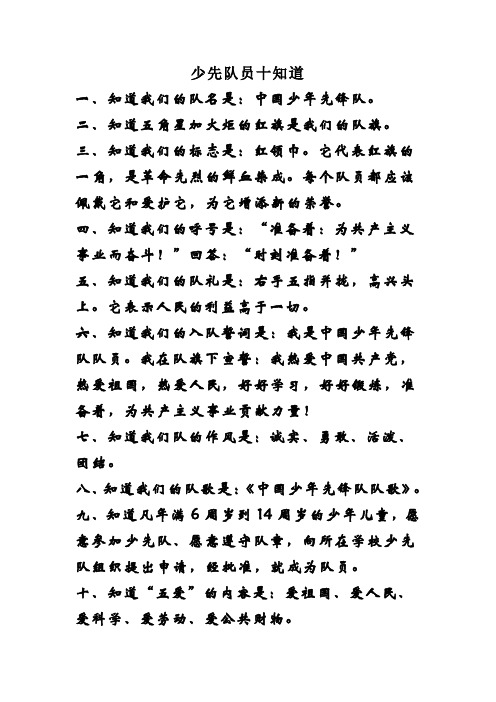 少先队员十知道
一、知道我们的队名是：中国少年先锋队。
二、知道五角星加火炬的红旗是我们的队旗。
三、知道我们的标志是：红领巾。它代表红旗的
一角，是革命先烈的鲜血染成。每个队员都应该
佩戴它和爱护它，为它增添新的荣誉。
四、知道我们的呼号是：“准备着：为共产主义
事业而奋斗！”回答：“时刻准备着！”
五、知道我们的队礼是：右手五指并拢，高兴头
上。它表示人民的利益高于一切。
六、知道我们的入队誓词是：我是中国少年先锋
队队员。我在队旗下宣誓：我热爱中国共产党，
热爱祖国，热爱人民，好好学习，好好锻炼，准
备着，为共产主义事业贡献力量！
七、知道我们队的作风是：诚实、勇敢、活泼、
团结。
八、知道我们的队歌是：《中国少年先锋队队歌》。
九、知道凡年满6周岁到14周岁的少年儿童，愿
意参加少先队、愿意遵守队章，向所在学校少先
队组织提出申请，经批准，就成为队员。
十、知道“五爱”的内容是：爱祖国、爱人民、
爱科学、爱劳动、爱公共财物。